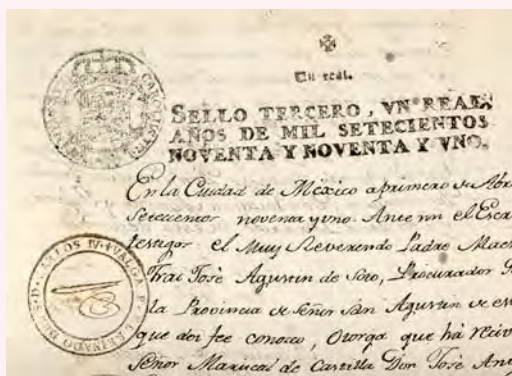 Un real.
SELLO TERCERO, VN REAL,
AÑOS DE MIL SETECIENTOS
NOVENTA Y NOVENTA Y VNO.
En la Ciudad de México a primero de Abr
Setecientos noventa y uno. Ante mi el Escr
testigos el Muy Reverendo Padre Maes
Frai José Agustin de Soto, Procurador
la Provincia de Señor San Agustin de es
que doi fee conosco, Otorga que há reciv
Señor Mariscal de Castilla Don José Ant
CARLOS IV VALGA P EL REINADO DE S